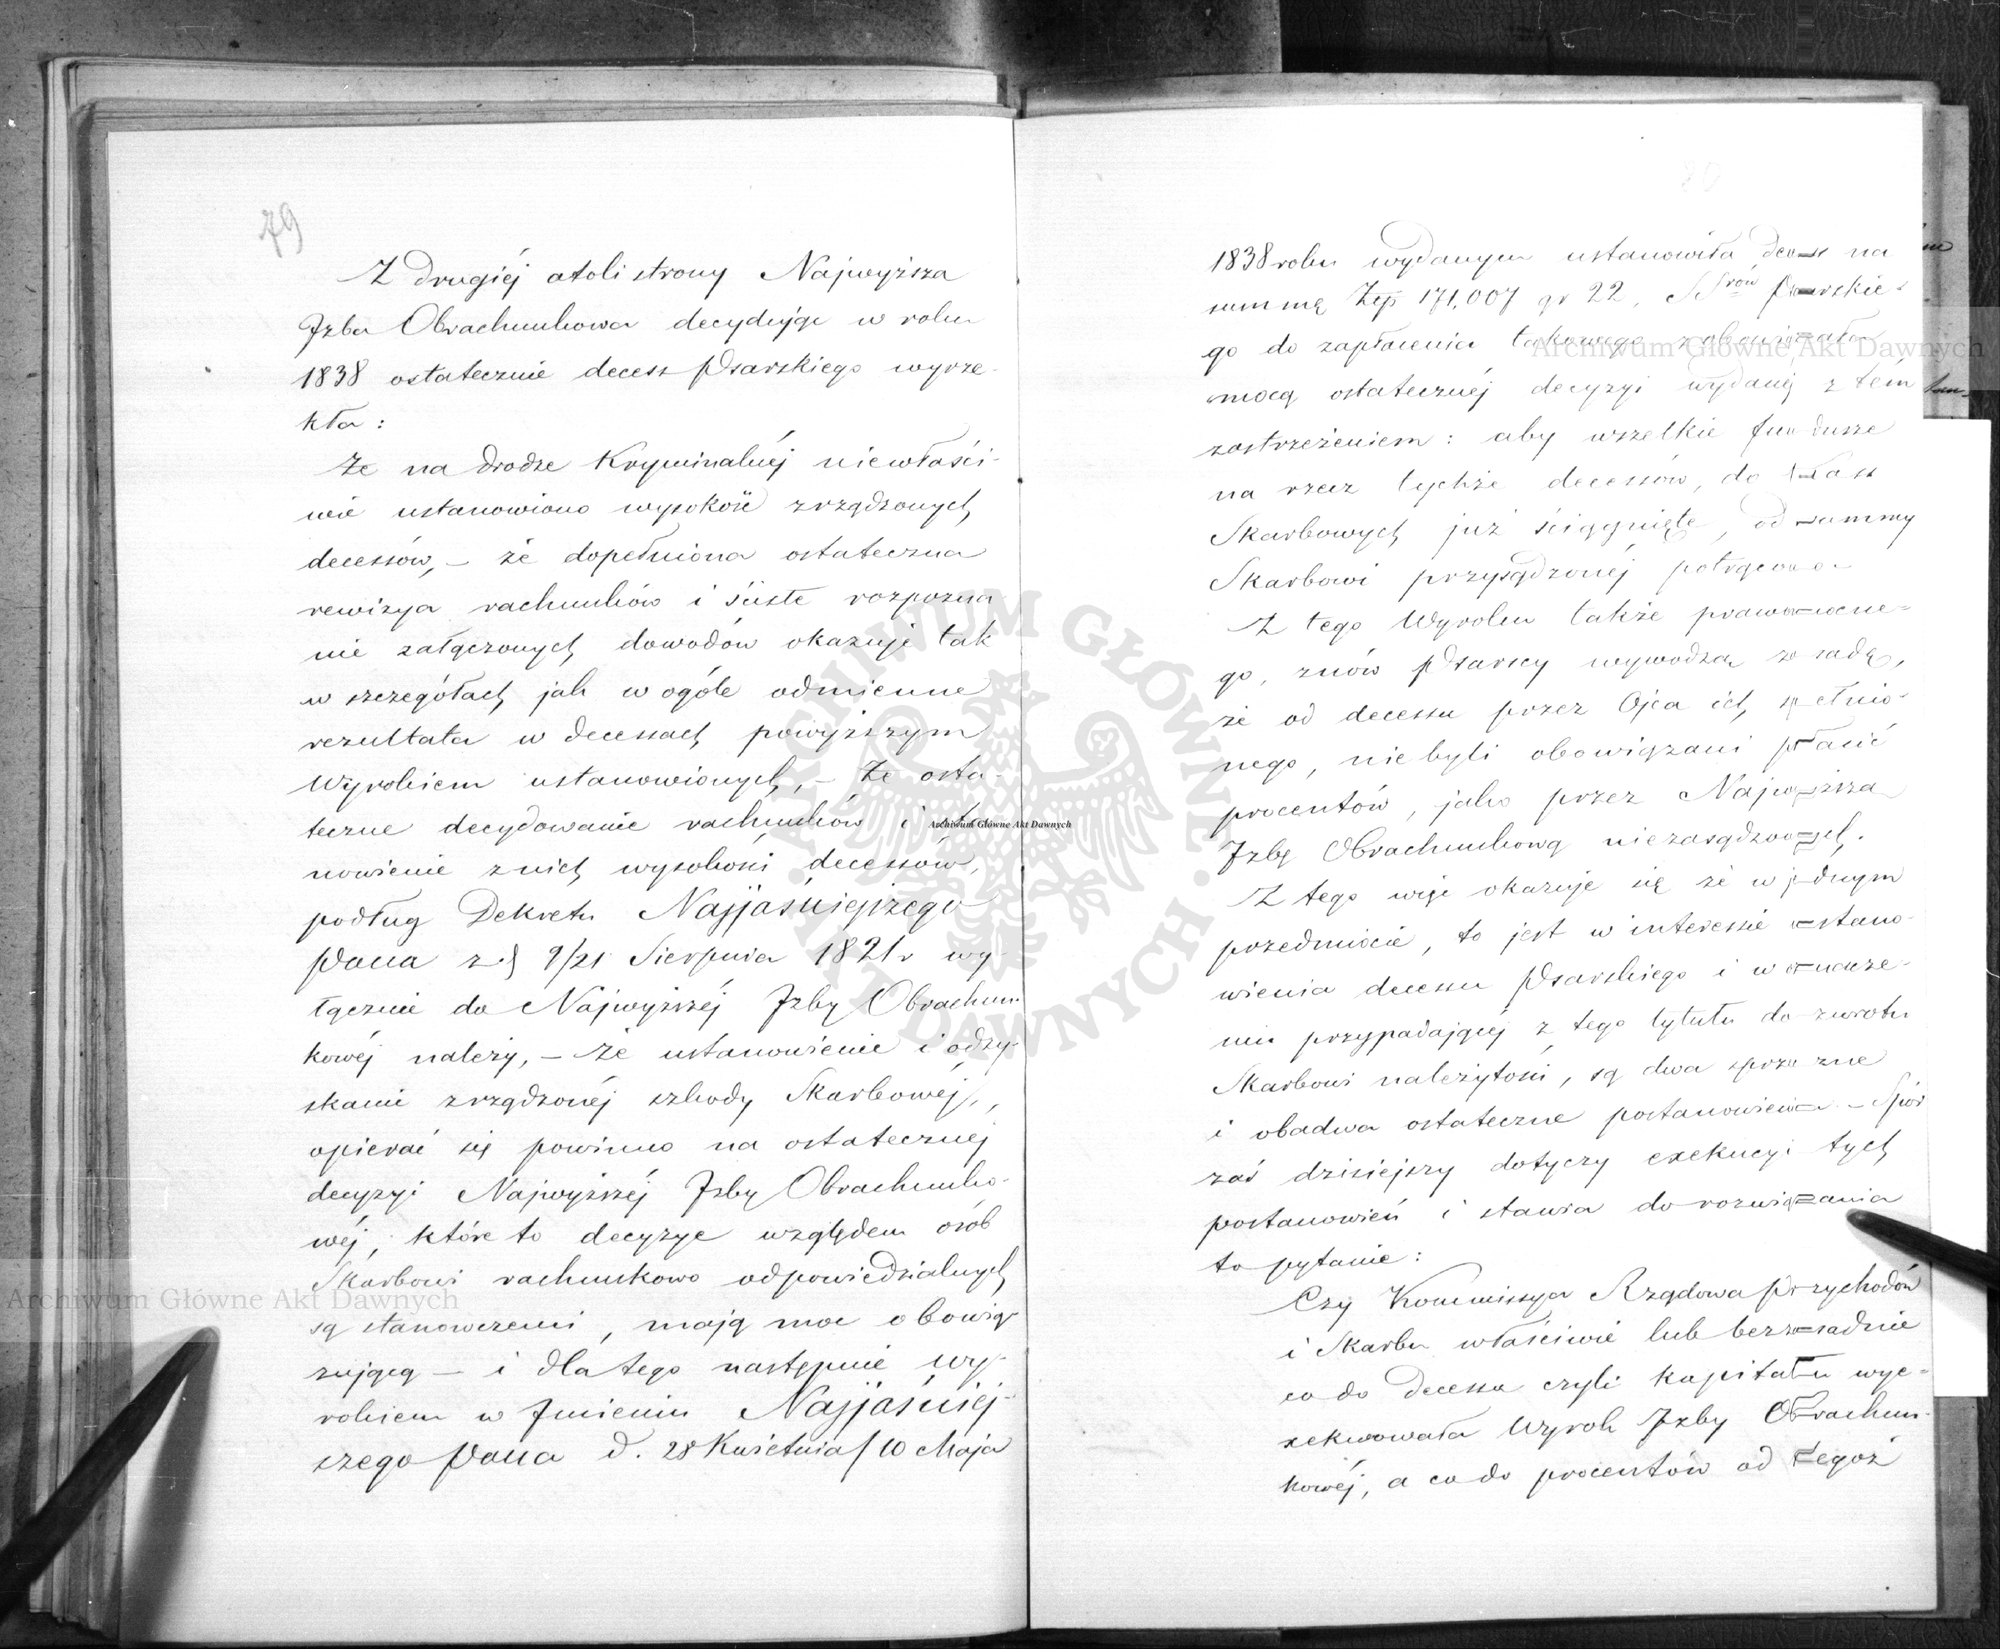 79
Z drugiéj atoli strony Najwyższa
Izba Obrachunkowa decydując w roku
1838 ostatecznie decess Psarskiego wyrze-
kła:
Że na drodze Kryminalnéj niewłaści-
wie ustanowiono wysokość zrządzonych
decessów, – że dopełniona ostateczna
rewizya rachunków i ścisłe rozpozna
nie załączonych dowodów okazuje tak
w szczegółach jak w ogóle odmienne
rezultata w decessach powyższym
Wyrokiem ustanowionych, – Że osta-
teczne decydowanie rachunków i
nowienie z nich wysokości decessów,
podług Dekretu Najjaśniejszego
Pana z d 9/21 Sierpnia 1821 r wy-
łącznie do Najwyższéj Izby Obrachun
kowéj należy, – że ustanowienie i odzy-
skanie zrządzonéj szkody Skarbowéj,
opierać się powinno na ostatecznéj
decyzyi Najwyższéj Izby Obrachunko-
wéj, które to decyzye względem osób
Skarbowi rachunkowo odpowiedzialnych
są stanowczemi, mają moc obowią-
zującą – i dla tego następnie Wy-
rokiem w Imieniu Najjaśniej-
szego Pana d. 28 Kwietnia/10 Maja
1838 roku wydanym ustanowiła decess na
summę Złp 171,007 gr 22, SSrów Psarskie-
go do zapłacenia takowego zobowiązała
mocą ostatecznéj decyzyi wydanéj z tém
zastrzeżeniem: aby wszelkie fundusze
na rzecz tychże decessów, do Kass
Skarbowych już ściągnięte, od summy
Skarbowi przysądzonéj potrącono
Z tego Wyroku także prawomocne-
go, znów Psarscy wywodzą zasadę,
że od decessu przez Ojca ich spełnio-
nego, nie byli obowiązani płacić
procentów, jako przez Najwyższą
Izbę Obrachunkową niezasądzonych.
Z tego więc okazuje się że w jednym
przedmiocie, to jest w interessie ustano-
wienia decessu Psarskiego i w oznacze-
niu przypadającéj z tego tytułu do zwrotu
Skarbowi należytości, są dwa sprzeczne
i obadwa ostateczne postanowienia – Spór
zaś dzisiejszy dotyczy exekucyi tych
postanowień i stawia do rozwiązania
to pytanie:
Czy Kommissya Rządowa Przychodów
i Skarbu właściwie lub bezzasadnie
co do decessu czyli kapitału wye-
xekwowała Wyrok Izby Obrachun-
kowéj, a co do procentów od tegoż
Archiwum Główne Akt Dawnych
Archiwum Główne Akt Dawnych
Archiwum Główne Akt Dawnych
ARCHIWUM GŁÓWNE AKT DAWNYCH